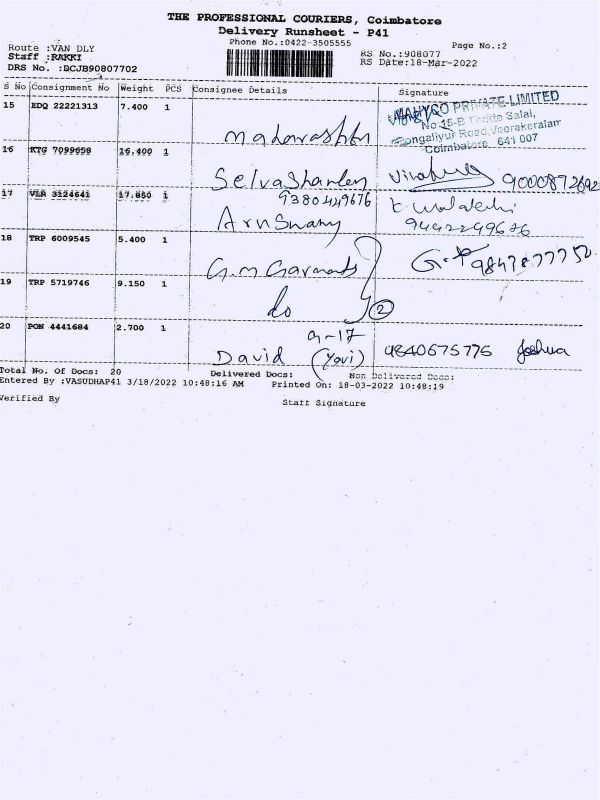 THE PROFESSIONAL COURIERS, Coimbatore
Delivery Runsheet - P41
Phone No.:0422-3505555
Page No.:2
Route :VAN DLY
Staff :RAKKI
DRS No. :DCJB90807702
RS No.:908077
RS Date:18-Mar-2022
S No Consignment No Weight PCS Consignee Details Signature
15 EDQ 22221313 7.400 1
PRIVATE LIMITED
No 15-B Salai,
Road, Veerakeralam
Coimbatore, 641 007
16 KTG 7099658 16.400 1
9380449676
17 VLR 3124641 17.850 1
9442249676
18 TRP 6009545 5.400 1
19 TRP 5719746 9.150 1
do 2
20 PON 4441684 2.700 1
David 4840675775 Joshua
Total No. Of Docs: 20 Delivered Docs: Non Delivered Docs:
Entered By :VASUDHAP41 3/18/2022 10:48:16 AM Printed On: 18-03-2022 10:48:19
Verified By Staff Signature